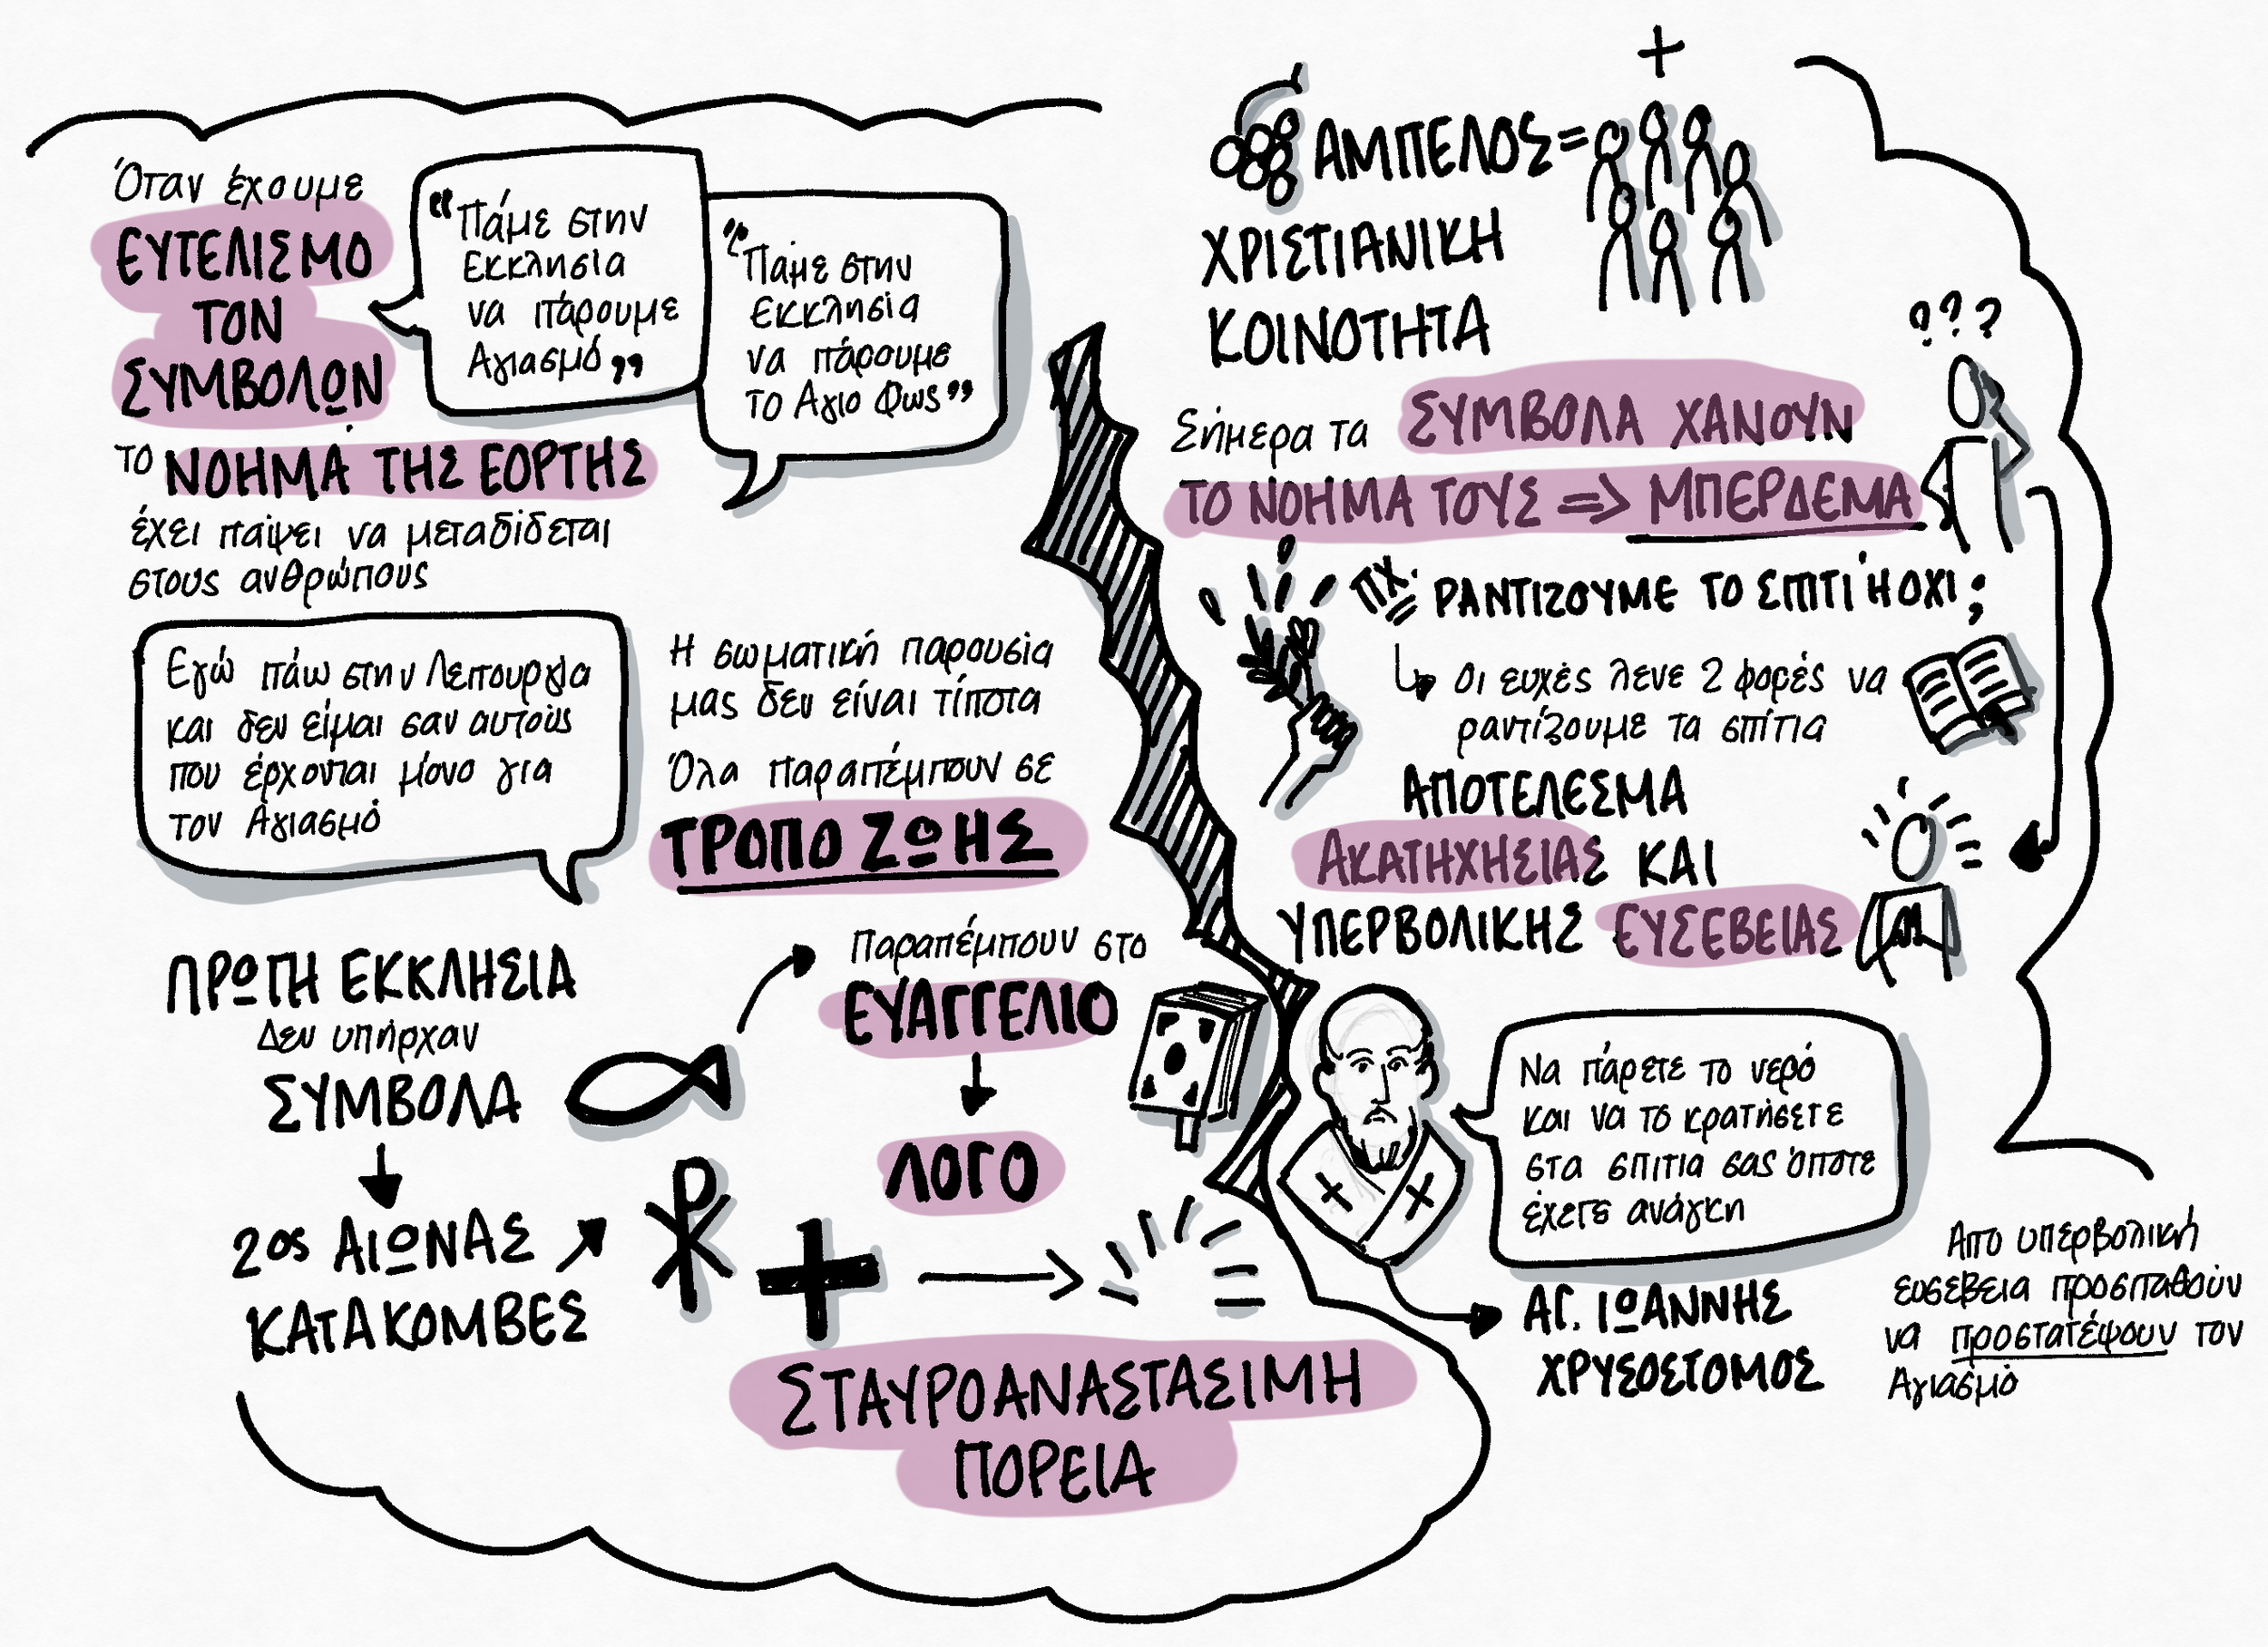 Όταν έχουμε
ΕΥΤΕΛΙΣΜΟ
ΤΟΝ
ΣΥΜΒΟΛΩΝ
"Πάμε στην
Εκκλησία
να πάρουμε
Αγιασμό"
"Πάμε στην
Εκκλησία
να πάρουμε
το Αγιο Φως"
το ΝΟΗΜΑ ΤΗΣ ΕΟΡΤΗΣ
έχει παίψει να μεταδίδεται
στους ανθρώπους
Εγώ πάω στην Λειτουργία
και δεν είμαι σαν αυτούς
που έρχονται μόνο για
τον Αγιασμό
Η σωματική παρουσία
μας δεν είναι τίποτα
Όλα παραπέμπουν σε
ΤΡΟΠΟ ΖΩΗΣ
ΠΡΩΤΗ ΕΚΚΛΗΣΙΑ
Δεν υπήρχαν
ΣΥΜΒΟΛΑ
2ος ΑΙΩΝΑΣ
ΚΑΤΑΚΟΜΒΕΣ
Παραπέμπουν στο
ΕΥΑΓΓΕΛΙΟ
ΛΟΓΟ
ΣΤΑΥΡΟΑΝΑΣΤΑΣΙΜΗ
ΠΟΡΕΙΑ
ΑΜΠΕΛΟΣ =
ΧΡΙΣΤΙΑΝΙΚΗ
ΚΟΙΝΟΤΗΤΑ
???
Σήμερα τα ΣΥΜΒΟΛΑ ΧΑΝΟΥΝ
ΤΟ ΝΟΗΜΑ ΤΟΥΣ => ΜΠΕΡΔΕΜΑ
ΠΧ: ΡΑΝΤΙΖΟΥΜΕ ΤΟ ΣΠΙΤΙ Ή ΟΧΙ;
Οι ευχές λένε 2 φορές να
ραντίζουμε τα σπίτια
ΑΠΟΤΕΛΕΣΜΑ
ΑΚΑΤΗΧΗΣΙΑΣ ΚΑΙ
ΥΠΕΡΒΟΛΙΚΗΣ ΕΥΣΕΒΕΙΑΣ
Να πάρετε το νερό
και να το κρατήσετε
στα σπιτια σας όποτε
έχετε ανάγκη
ΑΓ. ΙΩΑΝΝΗΣ
ΧΡΥΣΟΣΤΟΜΟΣ
Απο υπερβολική
ευσεβεια προσπαθούν
να προστατέψουν τον
Αγιασμό